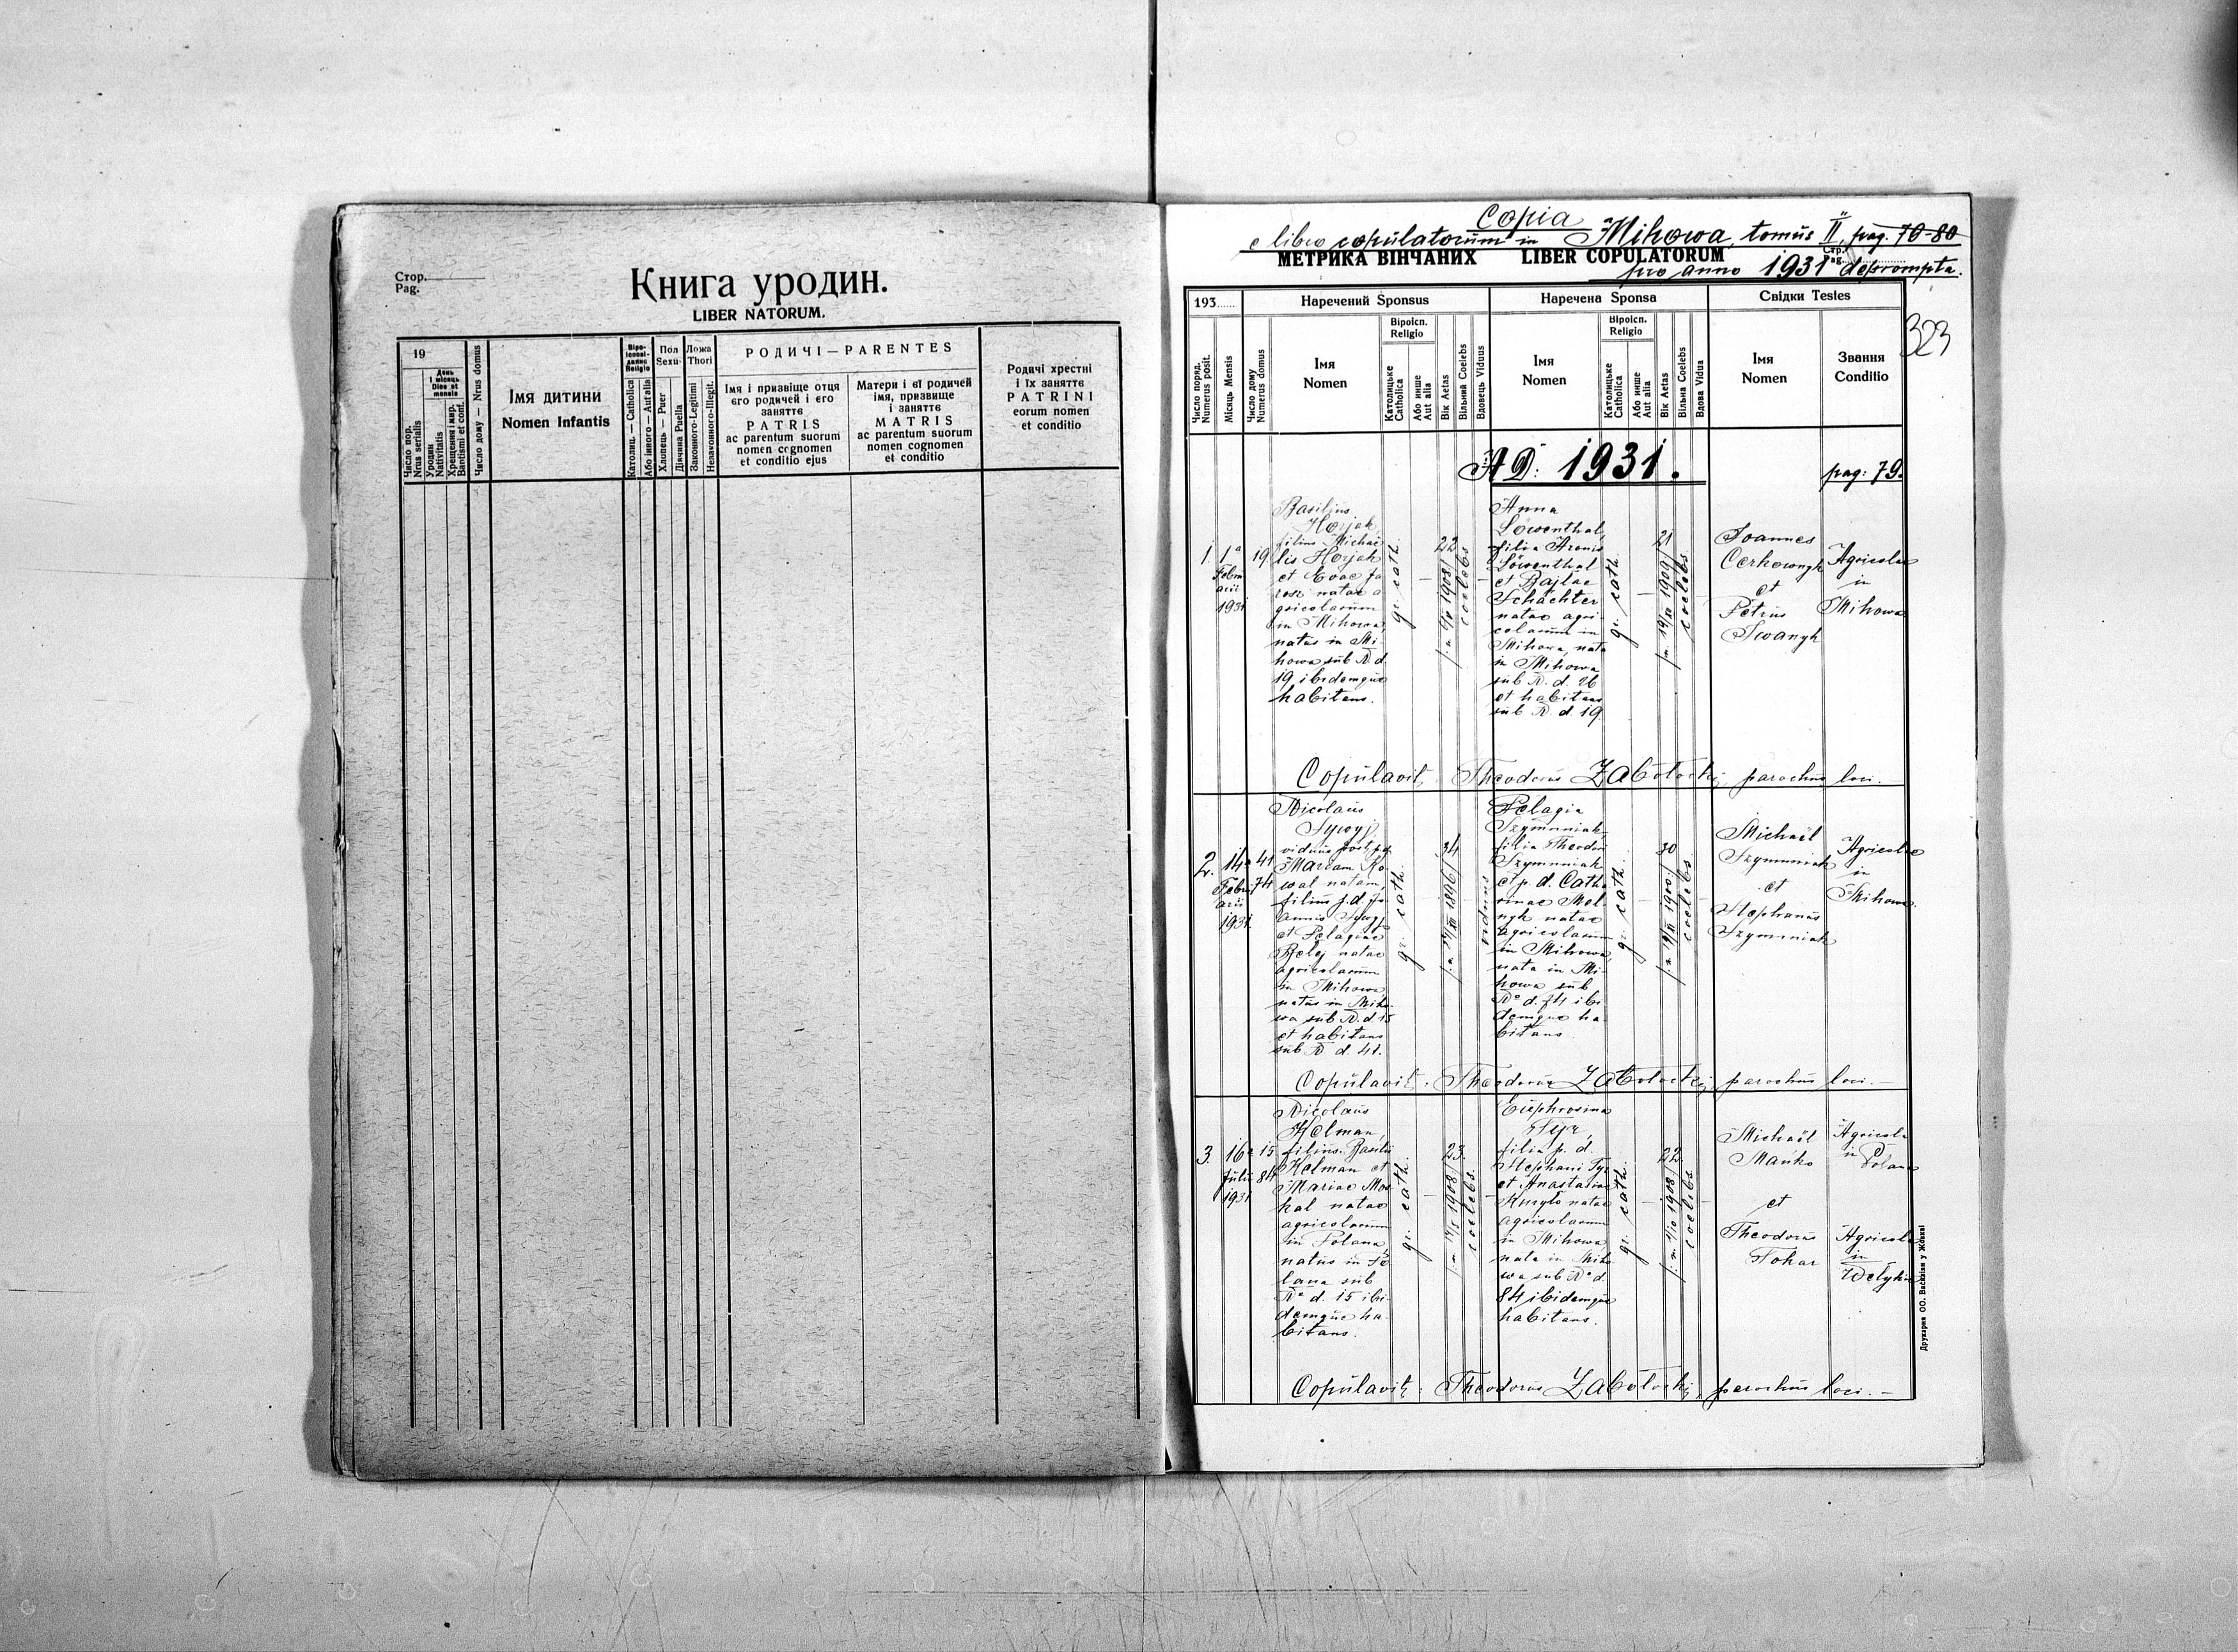 Стор.
Pag.
Книга уродин.
LIBER NATORUM.
19
День і місяць
Dies et mensis
Число пор.
Nrus serialis
Уродин
Nativitatis
Хрещення і мир.
Baptismi et conf.
Число дому — Nrus domus
Імя дитини
Nomen Infantis
Religio
Католиц. — Catholica
Або інного — Aut alia
Пол
Sexus
Хлопець — Puer
Дівчина Puella
Ложа
Thori
Законного-Legitimi
Незаконного-Illegit.
РОДИЧІ — PARENTES
Імя і призвіще отця
єго родичей і єго
заняттє
PATRIS
ac parentum suorum
nomen cognomen
et conditio ejus
Матери і єї родичей
імя, призвище
і заняттє
MATRIS
ac parentum suorum
nomen cognomen
et conditio
Родичі хрестні
і їх заняттє
PATRINI
eorum nomen
et conditio
Copia
e libro copulatorum in Mihowa, tomus II, pag. 70-80
МЕТРИКА ВІНЧАНИХ LIBER COPULATORUM
Стр.
Pag.
pro anno 1931 deprompta.
323
193
Наречений Sponsus
Наречена Sponsa
Свідки Testes
Число поряд.
Numerus posit.
Місяць Mensis
Число дому
Numerus domus
Імя
Nomen
Віроісп.
Religio
Католицьке
Catholica
Або инше
Aut alia
Вік Aetas
Вільний Coelebs
Вдовець Viduus
Імя
Nomen
Віроісп.
Religio
Католицьке
Catholica
Або инше
Aut alia
Вік Aetas
Вільна Coelebs
Вдова Vidua
Імя
Nomen
Звання
Conditio
A D: 1931.
pag: 79.
1.
1a
Febru
arii
1931
19
Basilius
Horjak
filius Michaë
lis Horjak
et Evae Ja
rosz natae a
gricolarum
in Mihowa,
natus in Mi
howa sub N. d.
19 ibidemque
habitans.
gr. cath.
22
1908
coelebs
Anna
Löwenthal,
filia Aronis
Löwenthal
et Bajlae
Schächter
natae agri
colarum in
Mihowa, nata
in Mihowa
sub N. d. 26
et habitans
sub N. d. 19.
gr. cath.
21
1909
coelebs
Joannes
Cerkownyk
et
Petrus
Iwanyk
Agricolae
in
Mihowa
Copulavit, Theodorus Zabolockij parochus loci.
2.
14a
Febru
arii
1931.
41
74
Nicolaus
Sywyj,
viduus post p. d.
Mariam Ko
wal natam,
filius p. d. Jo
annis Sywyj
et Pelagiae
Belej natae
agricolarum
in Mihowa
natus in Miho
wa sub N. d. 15
et habitans
sub N d. 41.
gr. cath.
34
1896
viduus
Pelagia
Szymniak
filia Theodori
Szymniak
et p. d. Catha
rinae Mel
nyk natae
agricolarum
in Mihowa
nata in Mi-
howa sub
No d. 74 ibi
demque ha
bitans.
gr. cath.
30
1900
coelebs
Michaël
Szymniak
et
Stephanus
Szymniak
Agricolae
in
Mihowa.
Copulavit. Theodorus Zabolockij, parochus loci.
3.
16a
Julii
1931
15
84
Nicolaus
Helman,
filius Basilii
Helman et
Mariae Mos
kal natae
agricolarum
in Polana,
natus in Po
lana sub
No d. 15 ibi
demque ha
bitans.
gr. cath.
23
1908
coelebs
Euphrosina
Tyz,
filia p. d.
Stephani Tyz
et Anastasiae
natae
agricolarum
in Mihowa
nata in Miho
wa sub No d.
84 ibidemque
habitans.
gr. cath.
22
1908
coelebs
Michaël
Mańko
et
Theodorus
Tokar
Agricola
in Polana
Agricola
in
Welyki
Copulavit: Theodorus Zabolockij, parochus loci.
Друкарня ОО. Василіян у Жовкві